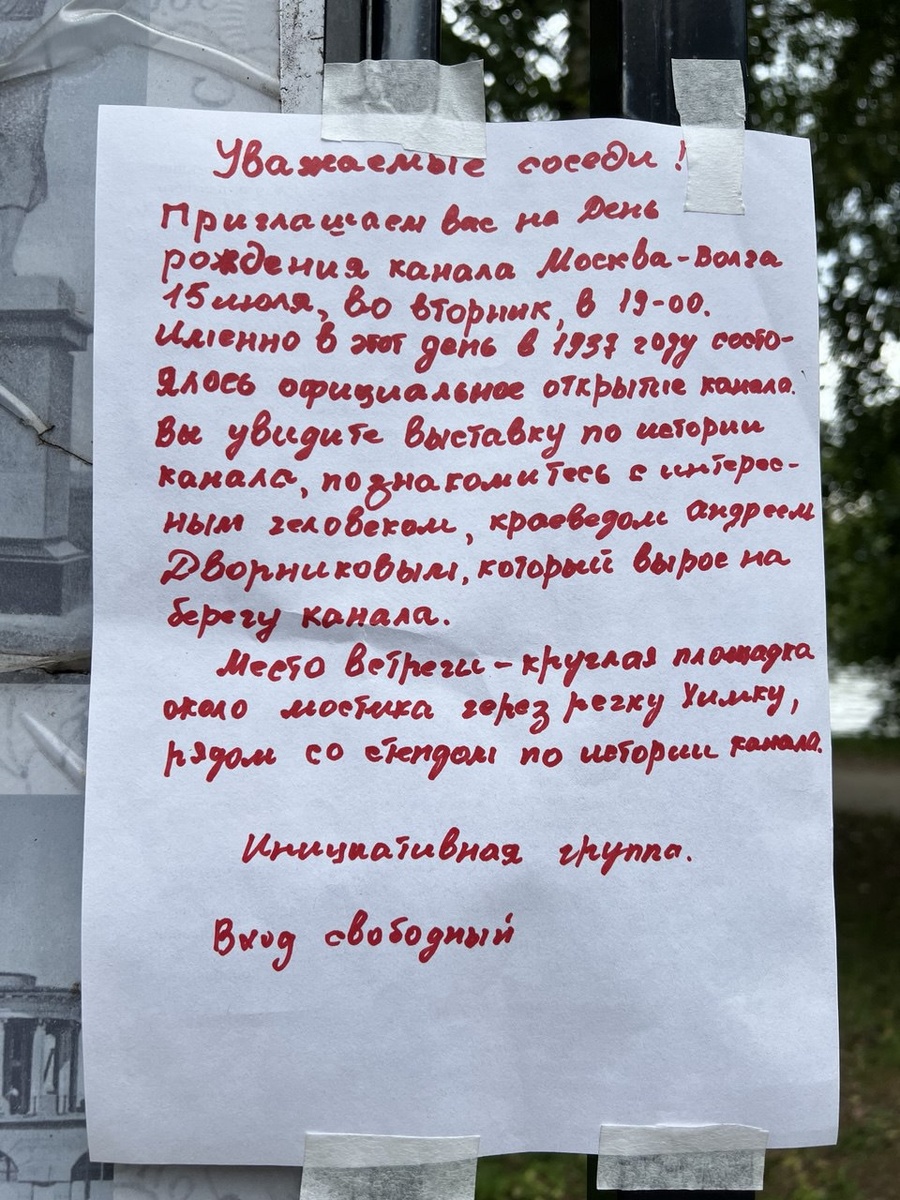 Уважаемые соседи!
Приглашаем вас на День
рождения канала Москва-Волга
15 июля, во вторник, в 19-00.
Именно в этот день в 1937 году состо-
ялось официальное открытие канала.
Вы увидите выставку по истории
канала, познакомитесь с интерес-
ным человеком, краеведом Андреем
Дворниковым, который вырос на
берегу канала.
Место встречи - круглая площадка
около мостика через речку Химку,
рядом со стендом по истории канала.
Инициативная группа.
Вход свободный